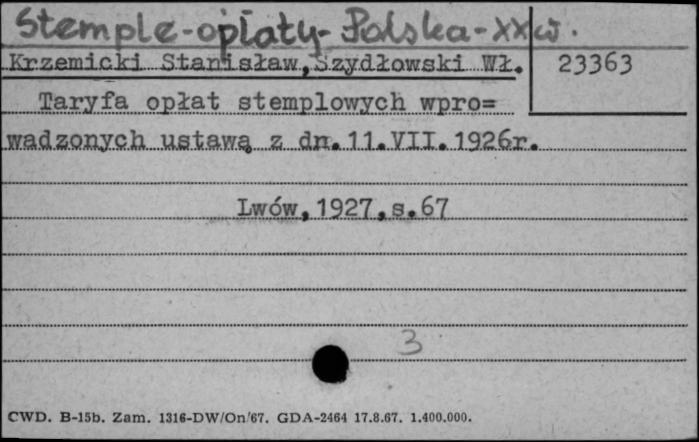 Stemple-opłaty-Polska-XXw.
Krzemicki Stanisław,Szydłowski Wł. 23363
Taryfa opłat stemplowych wpro=
wadzonych ustawą z dn.11.VII.1926r.
Lwów,1927,s.67
3
CWD. B-15b. Zam. 1316-DW/On/67. GDA-2464 17.8.67. 1.400.000.